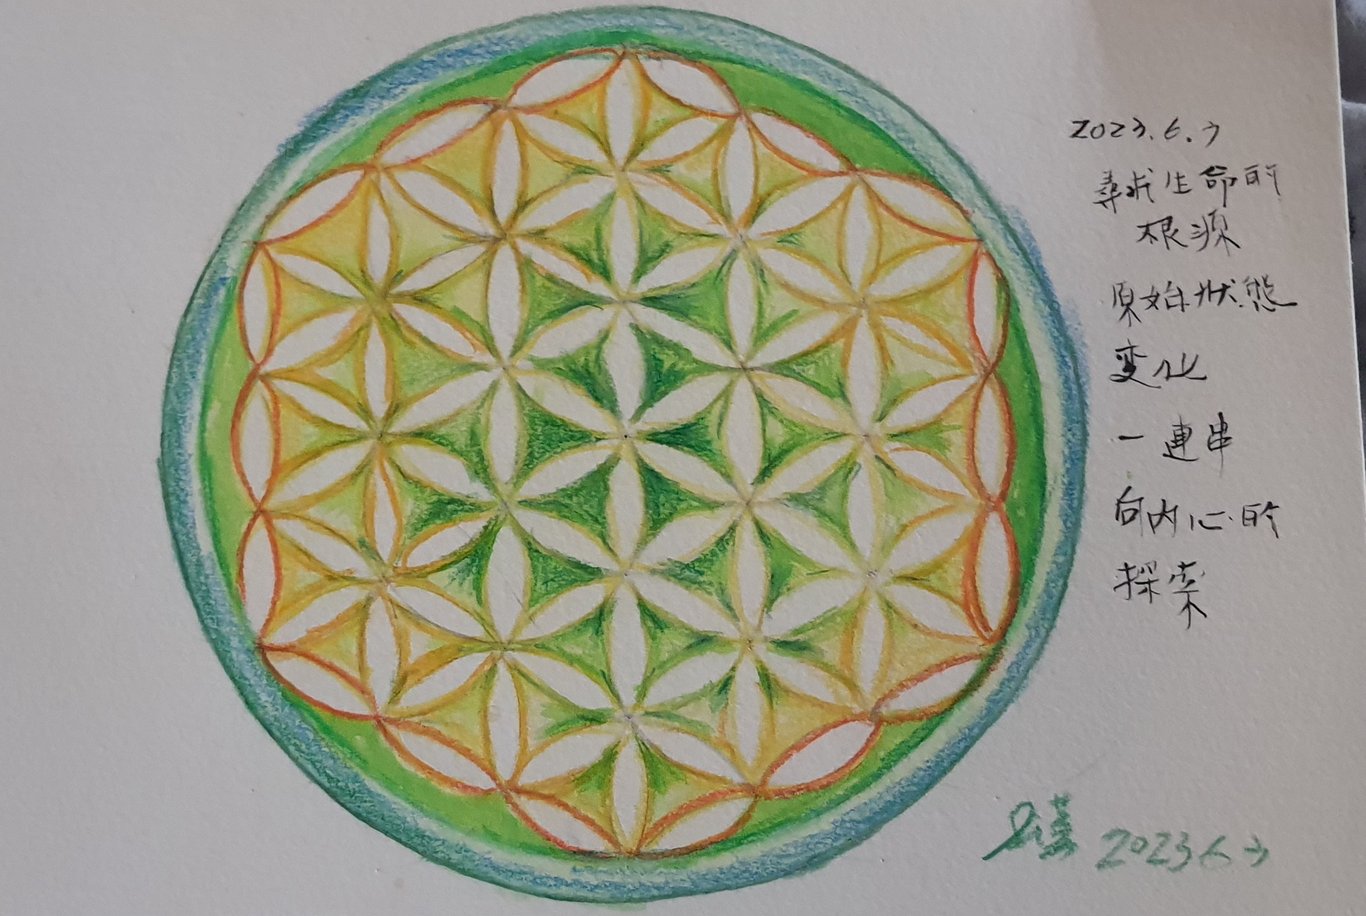 2023.6.7
尋求生命的
根源
原始狀態
变化
一連串
向內心的
探索
2023.6.7